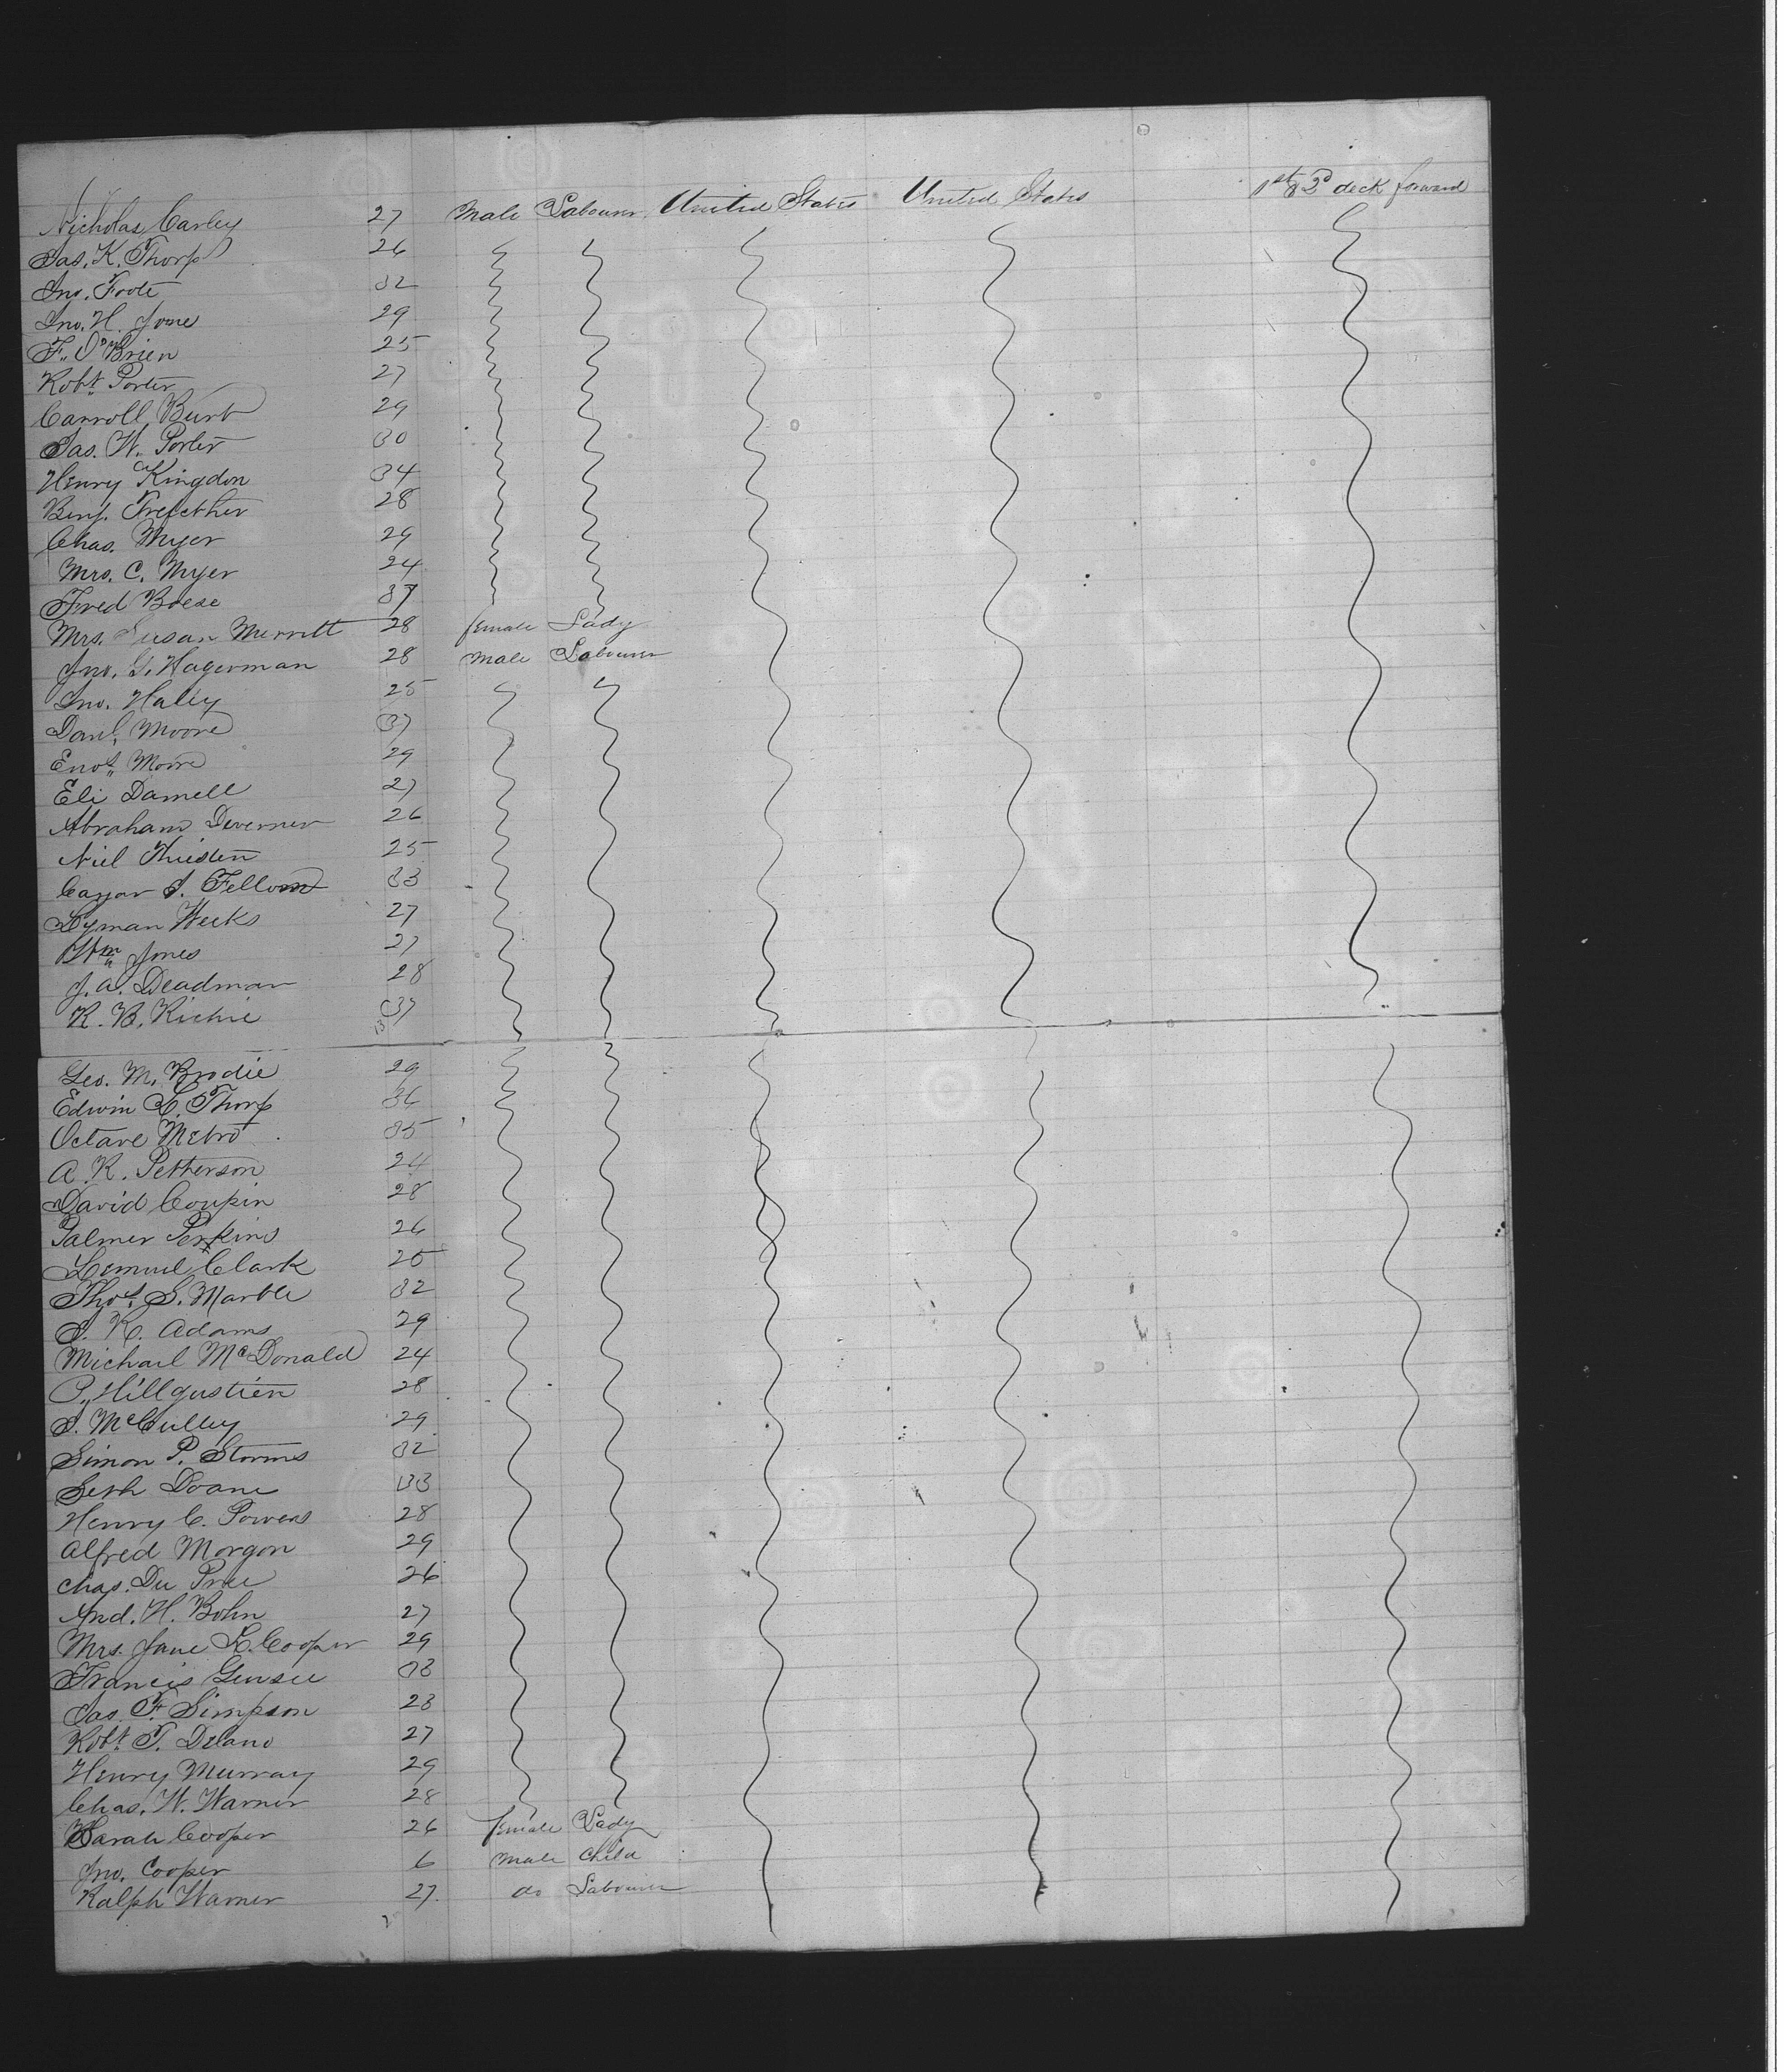 Nicholas Carley 27 Male Labourer United States United States 1st & 2d deck forward
Jas. K. Thorp 26
Jno. Foote 32
Jno. H. Jone 29
F. O'Brien 25
Robt. Porter 27
Carroll Burt 29
Jas. W. Porter 30
Henry Kingdon 34
Benj. Trefether 28
Chas. Myer 29
Mrs. C. Myer 24
Fred Boese 37
Mrs. Susan Merritt 28 female Lady
Jno. G. Hagerman 28 Male Labourer
Jno. Haley 25
Danl. Moore 37
Enos. Moore 29
Eli Darnell 27
Abraham Deverner 26
Niel Thisten 25
J. Fellows 33
Lyman Weeks 27
Wm. Jones 27
J. A. Deadman 28
R. B. Richie 37
Geo. M. Brodie 29
Edwin C. Thorp 36
Octave Metro 35
A. K. Petterson 24
David Coupin 28
Palmer Perkins 26
Lemuel Clark 25
Thos. S. Marble 32
J. K. Adams 29
Michael McDonald 24
P. Hillgustien 28
J. McCulley 29
Simon P. Storms 32
Seth Doane 33
Henry C. Powers 28
Alfred Morgon 29
Chas. Du Pree 26
And. H. Bohn 27
Mrs. Jane L. Cooper 29
Francis Gensee 33
Jas. F. Simpson 28
Robt. T. Delano 27
Henry Murray 29
Chas. W. Warner 28
Sarah Cooper 26 female Lady
Jno. Cooper 6 male child
Ralph Warner 27. do Labourer